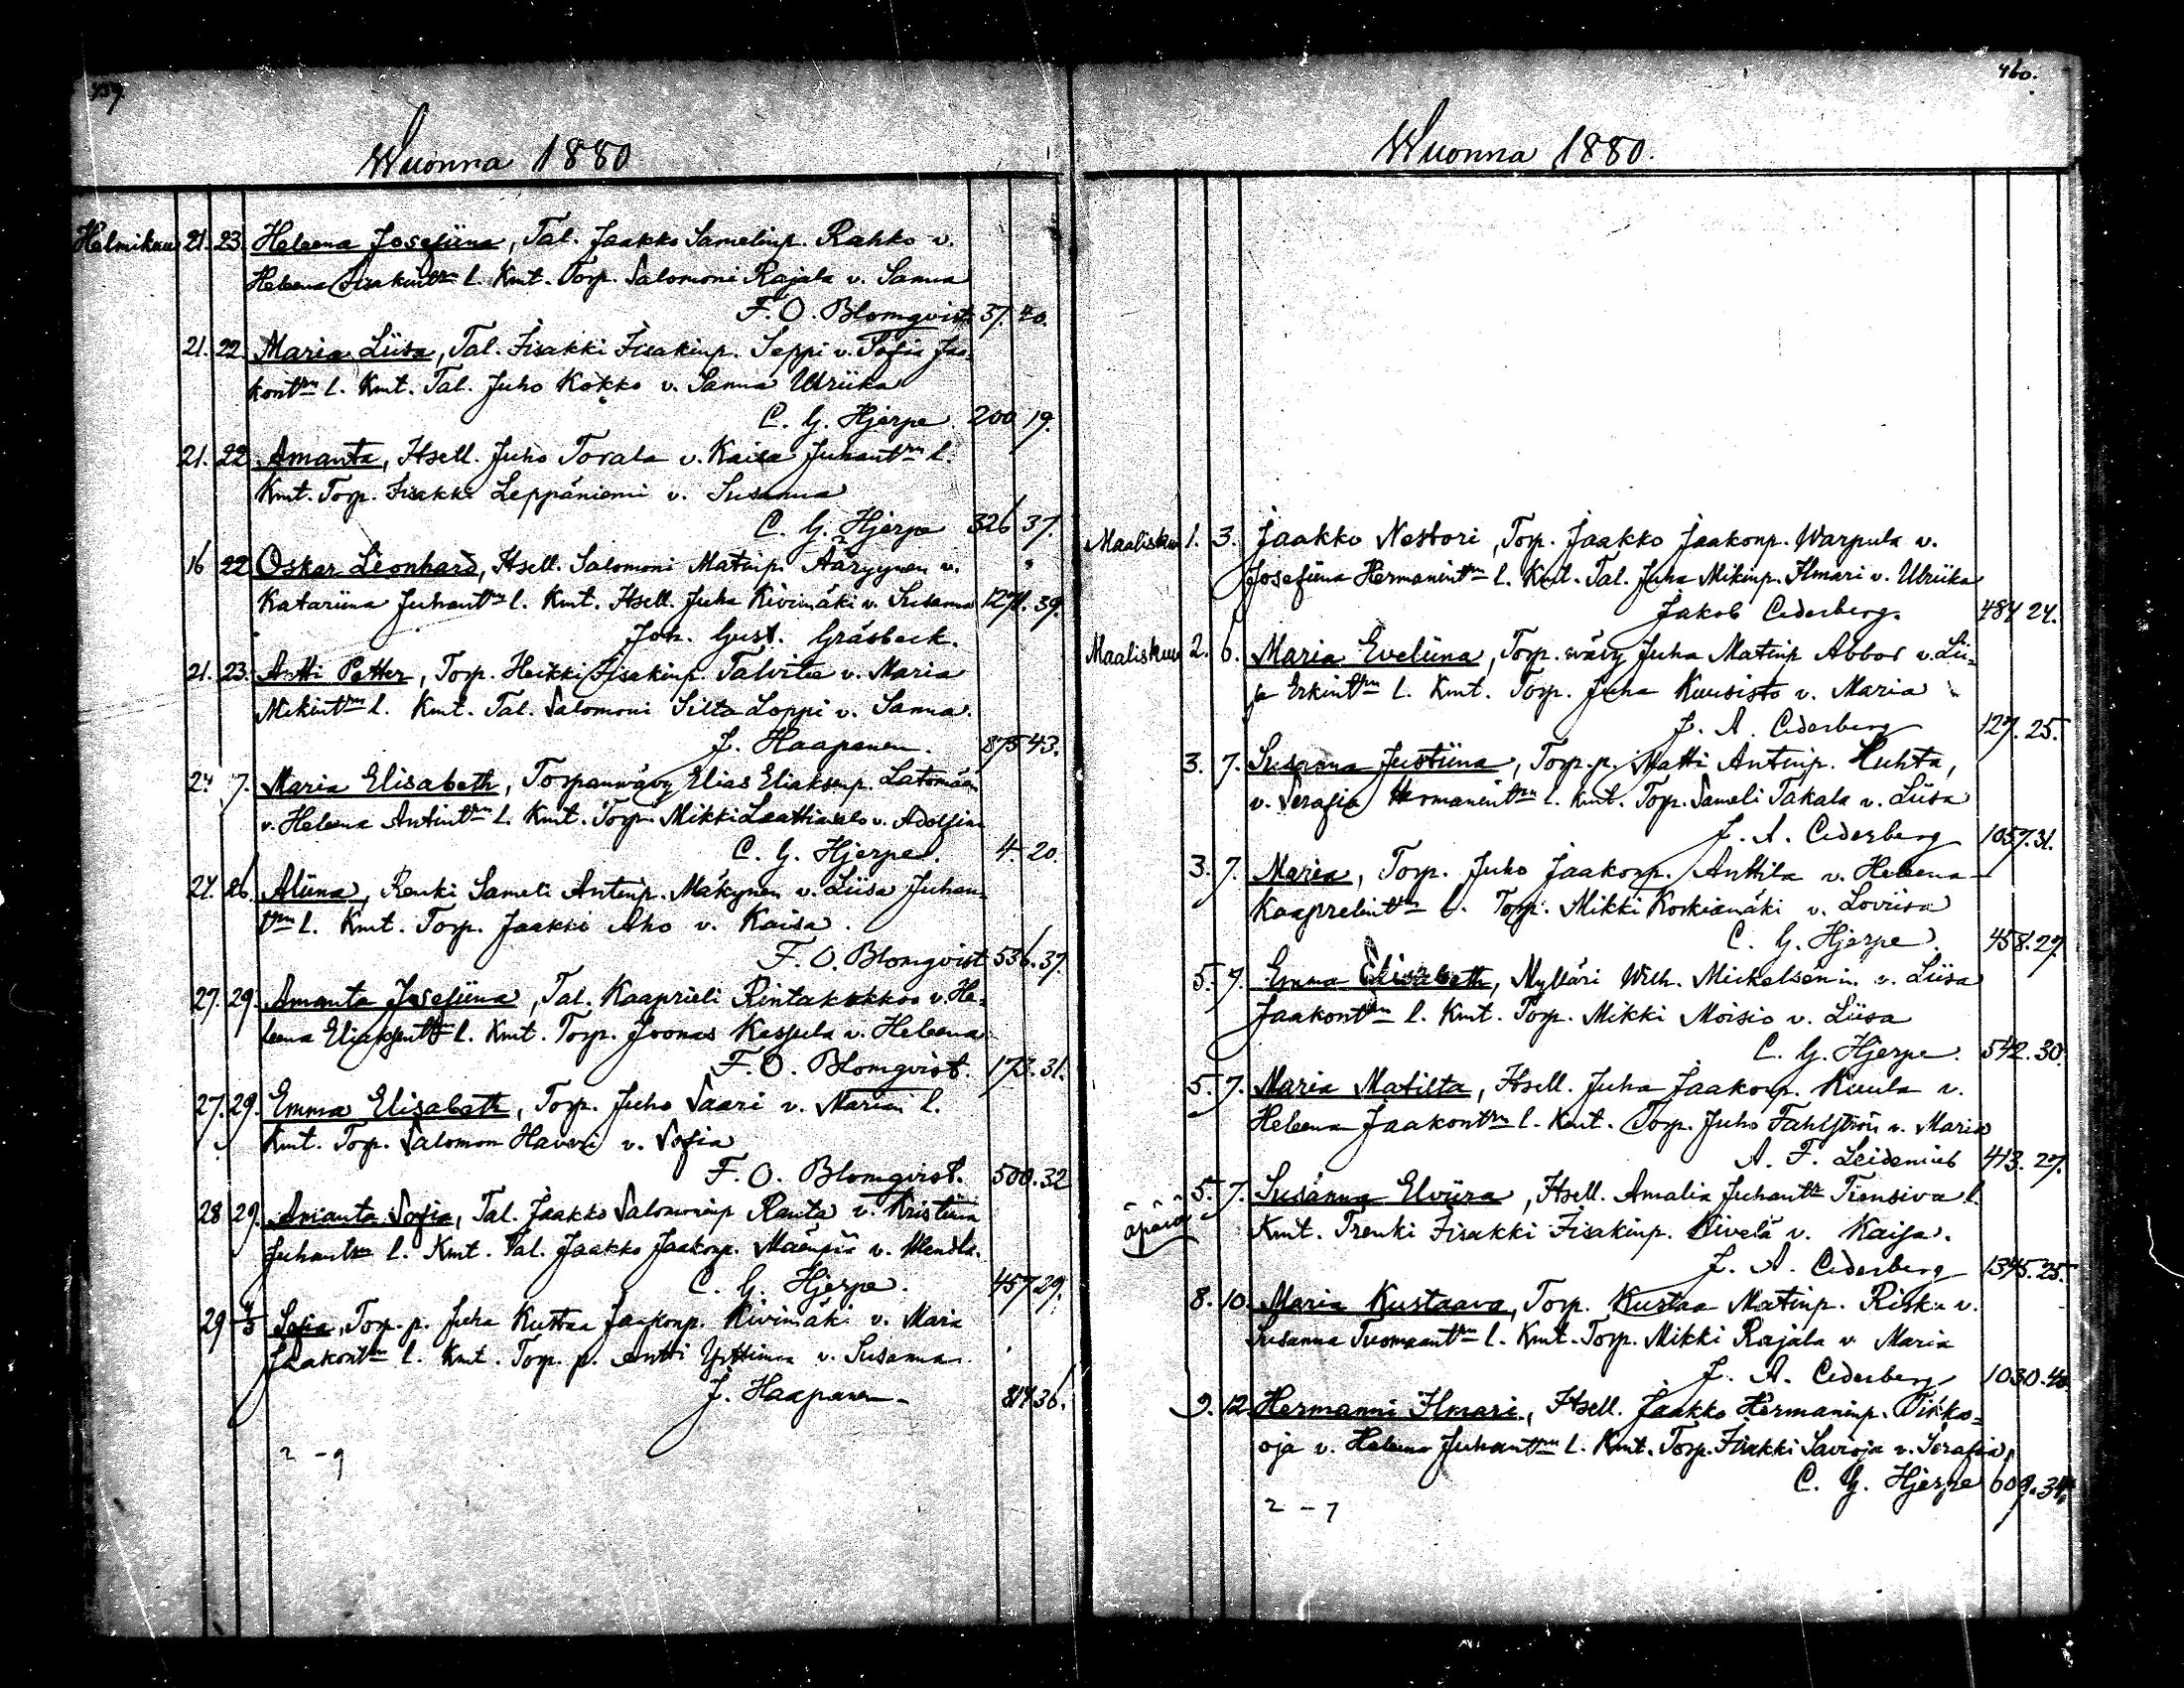 459.
Wuonna 1880
Helmikuu 21. 23. Heleena Josefiina, Tal. Jaakko Samelinp. Rahko v.
Heleena Iisakint:rn l. Kmt. Torp. Salomoni Rajala v. Sanna
F. O. Blomqvist 37. 40.
21. 22 Maria Liisa, Tal. Iisakki Iisakinp. Seppi v. Sofia Jaa-
kont:rn l. Kmt. Tal. Juho Kokko v. Sanna Ulriika
C. G. Hjerpe 200 19.
21. 22 Amanta, Itsell. Juho Torala v. Kaisa Juhant:rn l.
Kmt. Torp. Iisakki Leppäniemi v. Susanna
C. G. Hjerpe 326 37.
16 22 Oskar Leonhard, Itsell. Salomoni Matinp. Äärynen v.
Katariina Juhant:rn l. Kmt. Itsell. Juha Kivimäki v. Susanna 1271. 39.
Joh. Gust. Gräsbeck.
21. 23. Antti Petter, Torp. Heikki Iisakinp. Talvitie v. Maria
Mikint:rn l. Kmt. Tal. Salomoni Silta Loppi v. Sanna.
J. Haapanen. 875 43.
24 7. Maria Elisabeth, Torpanwävy Elias Eliaksenp. Latomäen
v. Heleena Antint:rn l. Kmt. Torp. Mikki v. Adolfiina
C. G. Hjerpe. 4. 20.
24. 26 Aliina, Renki Sameli Antinp. Mäkynen v. Liisa Juhan-
t:rn l. Kmt. Torp. Jaakki Aho v. Kaisa.
F. O. Blomqvist 536. 37.
27. 29. Amanta Josefiina, Tal. Kaaprieli Rintakakkoo v. He-
leena Eliaksent:rn l. Kmt. Torp. Joonas Kaspula v. Heleena
F. O. Blomqvist. 173. 31.
27. 29. Emma Elisabeth, Torp. Juho Saari v. Marian l.
Kmt. Torp. Salomon Haveri v. Sofia
F. O. Blomqvist. 500. 32
28 29. Amanta Sofia, Tal. Jaakko Salomoninp Ranta v. Kristiina
Juhant:rn l. Kmt. Tal. Jaakko Jaakonp. Mäenpää v. Wendla.
C. G. Hjerpe. 457 29.
29 Sofia, Torp. p. Juha Kustaa Jaakonp. Kivimäki v. Maria
Jaakont:rn l. Kmt. Torp. p. Antti v. Susanna.
J. Haapanen 817 36.
2 - 9
460.
Wuonna 1880.
Maaliskuu 1. 3. Jaakko Nestori, Torp. Jaakko Jaakonp. Warpula v.
Josefiina Hermannint:rn l. Kmt. Tal. Juha Mikinp. Ilmari v. Ulriika
Jakob Cederberg. 484 24.
Maaliskuu 2. 6. Maria Eveliina, Torp. wävy Juha Matinp Abbor v. Lii-
sa Erkint:rn l. Kmt. Torp. Juha Kuusisto v. Maria
J. A. Cederberg 127. 25.
3. 7. Susanna Justiina, Torp. p. Matti Antinp. Huhta,
v. Serafia Hermanint:rn l. Kmt. Torp. Sameli Takala v. Liisa
J. A. Cederberg 1057. 31.
3. 7. Maria, Torp. Juho Jaakonp. Anttila v. Heleena
Kaaprelint:rn l. Torp. Mikki Koskimäki v. Loviisa
C. G. Hjerpe. 458. 27.
5. 7. Emma Elisabeth, Mylläri Wilh. Mickelsén in. v. Liisa
Jaakont:rn l. Kmt. Torp. Mikki Moisio v. Liisa
C. G. Hjerpe. 542. 30.
5. 7. Maria Matilta, Itsell. Juha Jaakonp. Kuula v.
Heleena Jaakont:rn l. Kmt. Torp. Juho Fahlström v. Maria
A. F. Leidenius 413. 27.
äpärä 5. 7. Susanna Elviira, Itsell. Amalia Juhant:r Tiensiva l.
Kmt. Trenki Iisakki Iisakinp. Kivelä v. Kaisa.
J. A. Cederberg 1345. 25.
8. 10. Maria Kustaava, Torp. Kustaa Matinp. Risku v.
Susanna Tuomaant:rn l. Kmt. Torp. Mikki Rajala v. Maria
J. A. Cederberg 1030. 40.
9. 12. Hermanni Ilmari, Itsell. Jaakko Hermaninp. Tikka-
oja v. Heleena Juhant:rn l. Kmt. Torp. Iisakki Savioja v. Serafia,
C. G. Hjerpe 609. 34.
2 - 7